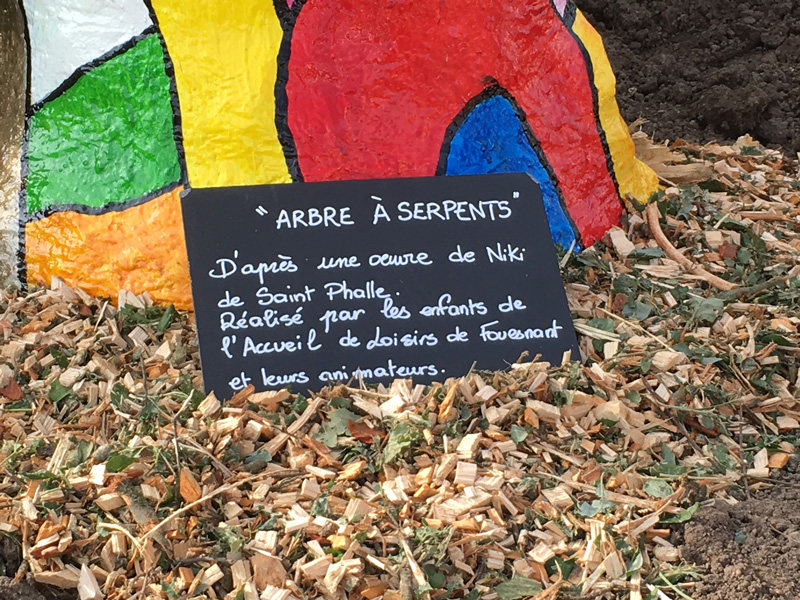 "ARBRE À SERPENTS"
D'après une oeuvre de Niki
de Saint Phalle.
Réalisé par les enfants de
l'Accueil de Loisirs de Fouesnant
et leurs animateurs.